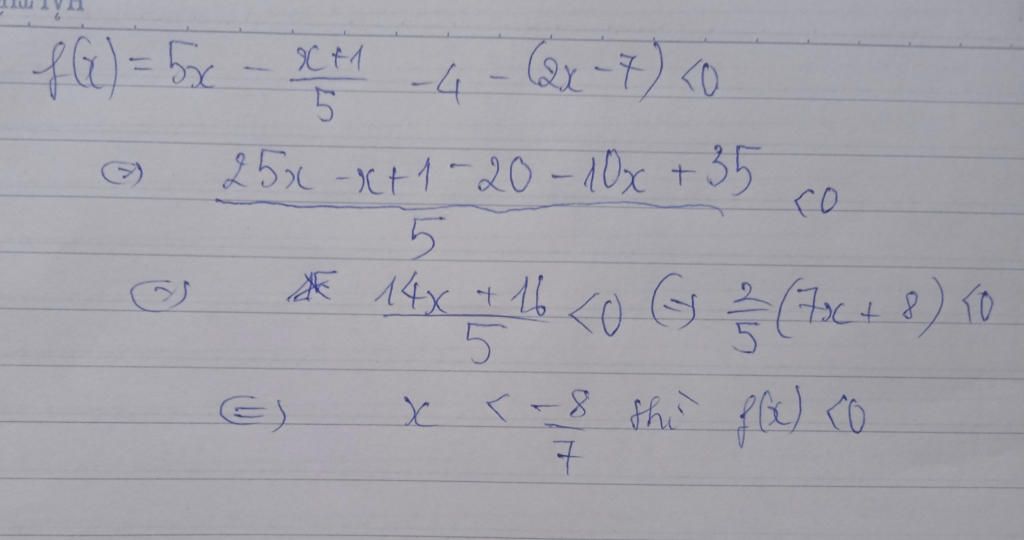 f(x) = 5x - \frac{x+1}{5} - 4 - (2x - 7) < 0
⇔ \frac{25x - x + 1 - 20 - 10x + 35}{5} < 0
⇔ \frac{14x + 16}{5} < 0 ⇔ \frac{2}{5}(7x + 8) < 0
⇔ x < \frac{-8}{7} thì f(x) < 0